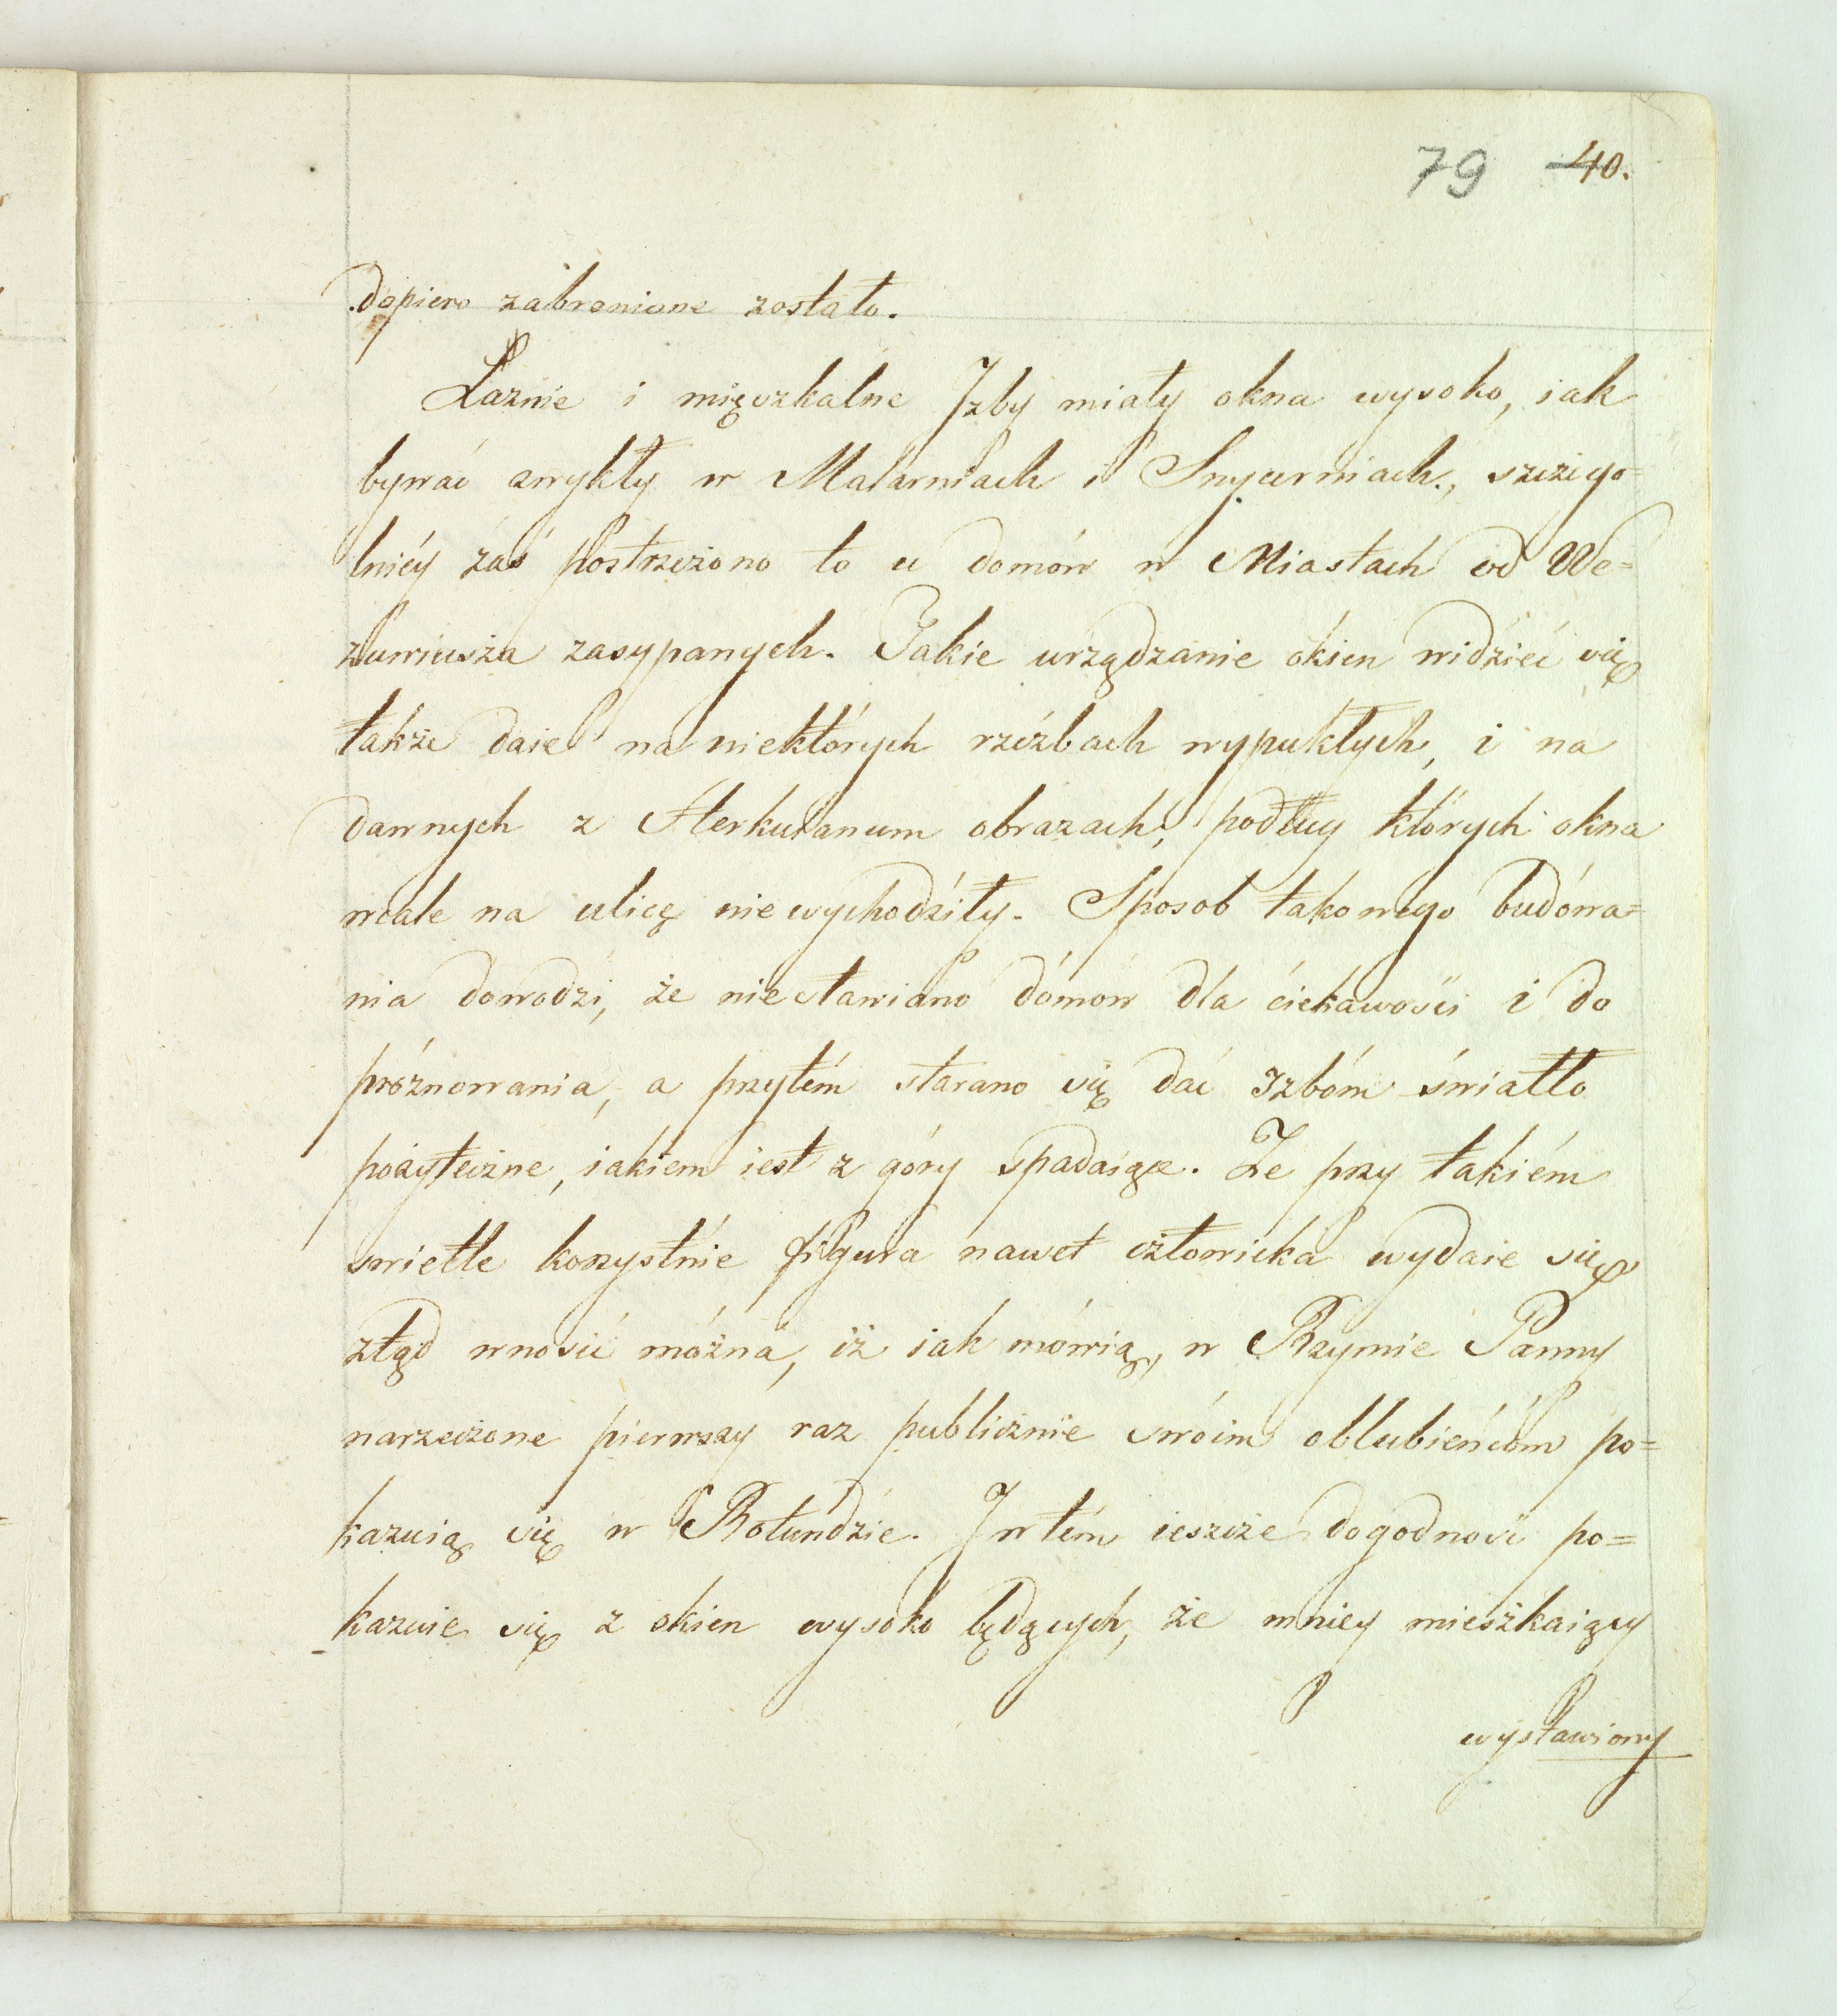 79 40.
dopiero zabronione zostało.
Łaznie i mięszkalne Jzby miały okna wysoko, iak
bywać zwykły w Malarniach i Snycerniach, szczego=
lniéy zaś postrzeżono to u domów w Miastach od We=
zuwiusza zasypanych. Takie urządzanie okien widzieć się
także daie na niektórych rzeźbach wypukłych, i na
dawnych z Herkulanum obrazach, podług których okna
wcale na ulicę niewychodziły. Sposob takowego budowa=
nia dowodzi, że niestawiano domów dla ciekawości i do
próżnowania, a przytém starano się dać Izbóm światło
pożyteczne, iakiem iest z góry spadaiące. Że przy takiém
świetle korzystnie figura nawet człowieka wydaie się,
ztąd wnosić można, iż iak mówią, w Rzymie Panny
narzeczone pierwszy raz publicznie swóim oblubieńcóm po=
kazuią się w Rotundzie. J w tém ieszcze dogodność po=
kazuie się z okien wysoko będących, że mniey mieszkaiący
wystawiony